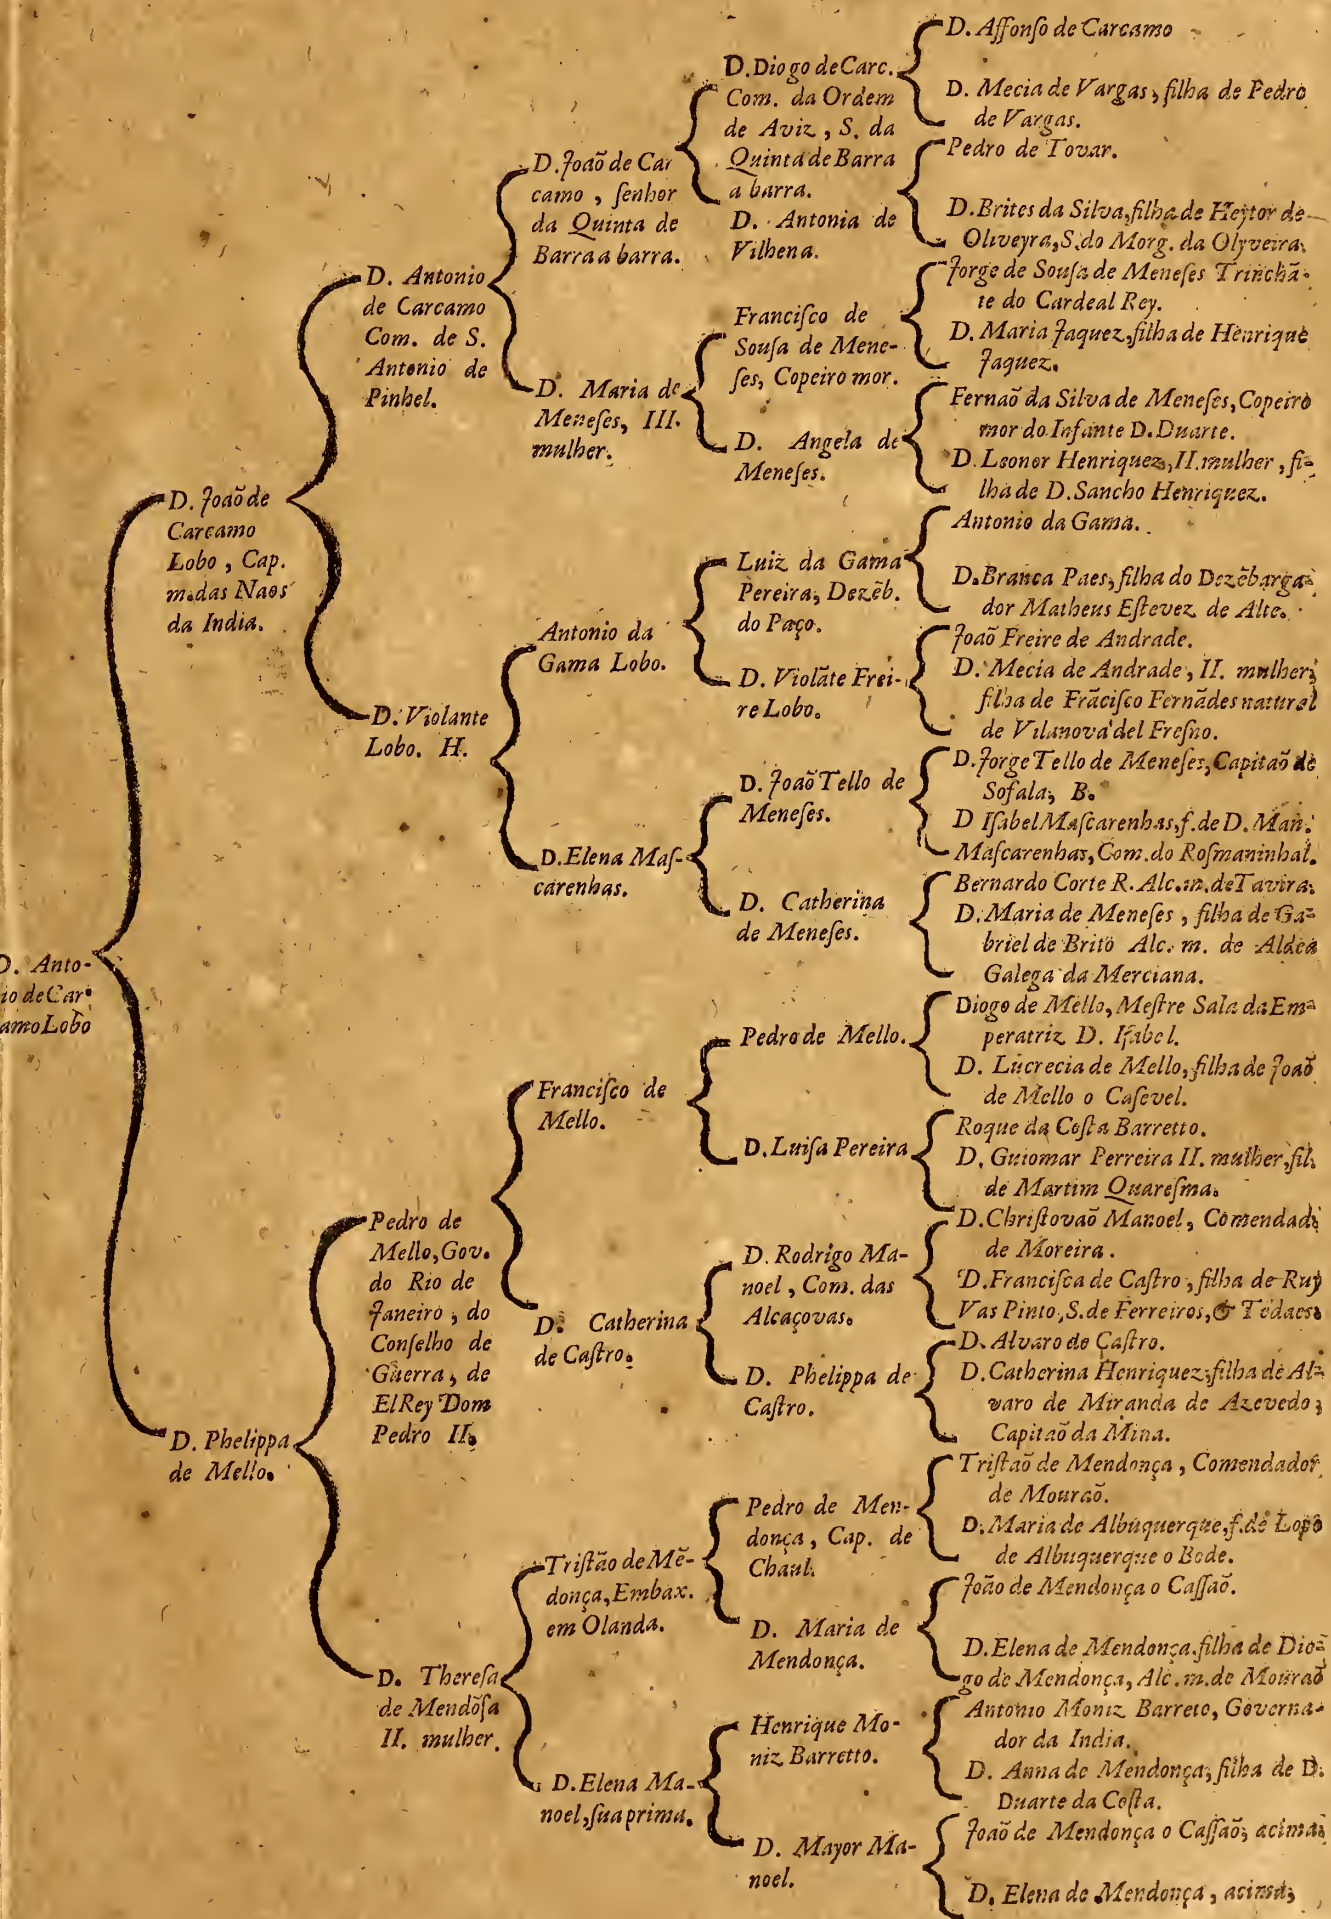 D. Anto-
io de Car-
amo Lobo
D. Joaõ de
Carcamo
Lobo, Cap.
m. das Naos
da India.
D. Phelippa
de Mello.
D. Antonio
de Carcamo
Com. de S.
Antonio de
Pinhel.
D. Violante
Lobo. H.
Pedro de
Mello, Gov.
do Rio de
Janeiro, do
Conſelho de
Guerra, de
ElRey Dom
Pedro II.
D. Thereſa
de Mendõſa
II. mulher.
D. Joaõ de Car
camo, ſenhor
da Quinta de
Barra a barra.
D. Maria de
Meneſes, III.
mulher.
Antonio da
Gama Lobo.
D. Elena Maſ-
carenhas.
Franciſco de
Mello.
D. Catherina
de Caſtro.
Triſtão de Mẽ-
donça, Embax.
em Olanda.
D. Elena Ma-
noel, ſua prima.
D. Diogo de Carc.
Com. da Ordem
de Aviz, S. da
Quinta de Barra
a barra.
D. Antonia de
Vilhena.
Franciſco de
Souſa de Mene-
ſes, Copeiro mor.
D. Angela de
Meneſes.
Luiz da Gama
Pereira, Dezẽb.
do Paço.
D. Violãte Frei-
re Lobo.
D. Joaõ Tello de
Meneſes.
D. Catherina
de Meneſes.
Pedro de Mello.
D. Luiſa Pereira
D. Rodrigo Ma-
noel, Com. das
Alcaçovas.
D. Phelippa de
Caſtro.
Pedro de Men-
donça, Cap. de
Chaul.
D. Maria de
Mendonça.
Henrique Mo-
niz Barretto.
D. Mayor Ma-
noel.
D. Affonſo de Carcamo
D. Mecia de Vargas, filha de Pedro
de Vargas.
Pedro de Tovar.
D. Brites da Silva, filha de Heytor de
Oliveyra, S. do Morg. da Olyveira.
Jorge de Souſa de Meneſes Trinchã-
te do Cardeal Rey.
D. Maria Jaquez, filha de Henrique
Jaquez.
Fernaõ da Silva de Meneſes, Copeiro
mor do Infante D. Duarte.
D. Leonor Henriquez, II. mulher, fi-
lha de D. Sancho Henriquez.
Antonio da Gama.
D. Branca Paes, filha do Dezẽbarga-
dor Matheus Eſtevez de Alte.
Joaõ Freire de Andrade.
D. Mecia de Andrade, II. mulher,
filha de Frãciſco Fernãdes natural
de Vilanova del Freſno.
D. Jorge Tello de Meneſes, Capitaõ de
Sofala, B.
D Iſabel Maſcarenhas, f. de D. Man.
Maſcarenhas, Com. do Roſmaninhal.
Bernardo Corte R. Alc. m. de Tavira.
D. Maria de Meneſes, filha de Ga-
briel de Brito Alc. m. de Aldea
Galega da Merciana.
Diogo de Mello, Meſtre Sala da Em-
peratriz D. Iſabel.
D. Lucrecia de Mello, filha de Joaõ
de Mello o Caſevel.
Roque da Coſta Barretto.
D. Guiomar Perreira II. mulher, fil.
de Martim Quareſma.
D. Chriſtovaõ Manoel, Comendad.
de Moreira.
D. Franciſca de Caſtro, filha de Ruy
Vas Pinto, S. de Ferreiros, & Tẽdaes.
D. Alvaro de Caſtro.
D. Catherina Henriquez, filha de Al-
varo de Miranda de Azevedo,
Capitaõ da Mina.
Triſtaõ de Mendonça, Comendador
de Mouraõ.
D. Maria de Albuquerque, f. de Lopo
de Albuquerque o Bode.
João de Mendonça o Caſſaõ.
D. Elena de Mendonça, filha de Dio-
go de Mendonça, Alc. m. de Mouraõ
Antonio Moniz Barreto, Governa-
dor da India.
D. Anna de Mendonça, filha de D.
Duarte da Coſta.
Joaõ de Mendonça o Caſſaõ, acima.
D. Elena de Mendonça, acima,